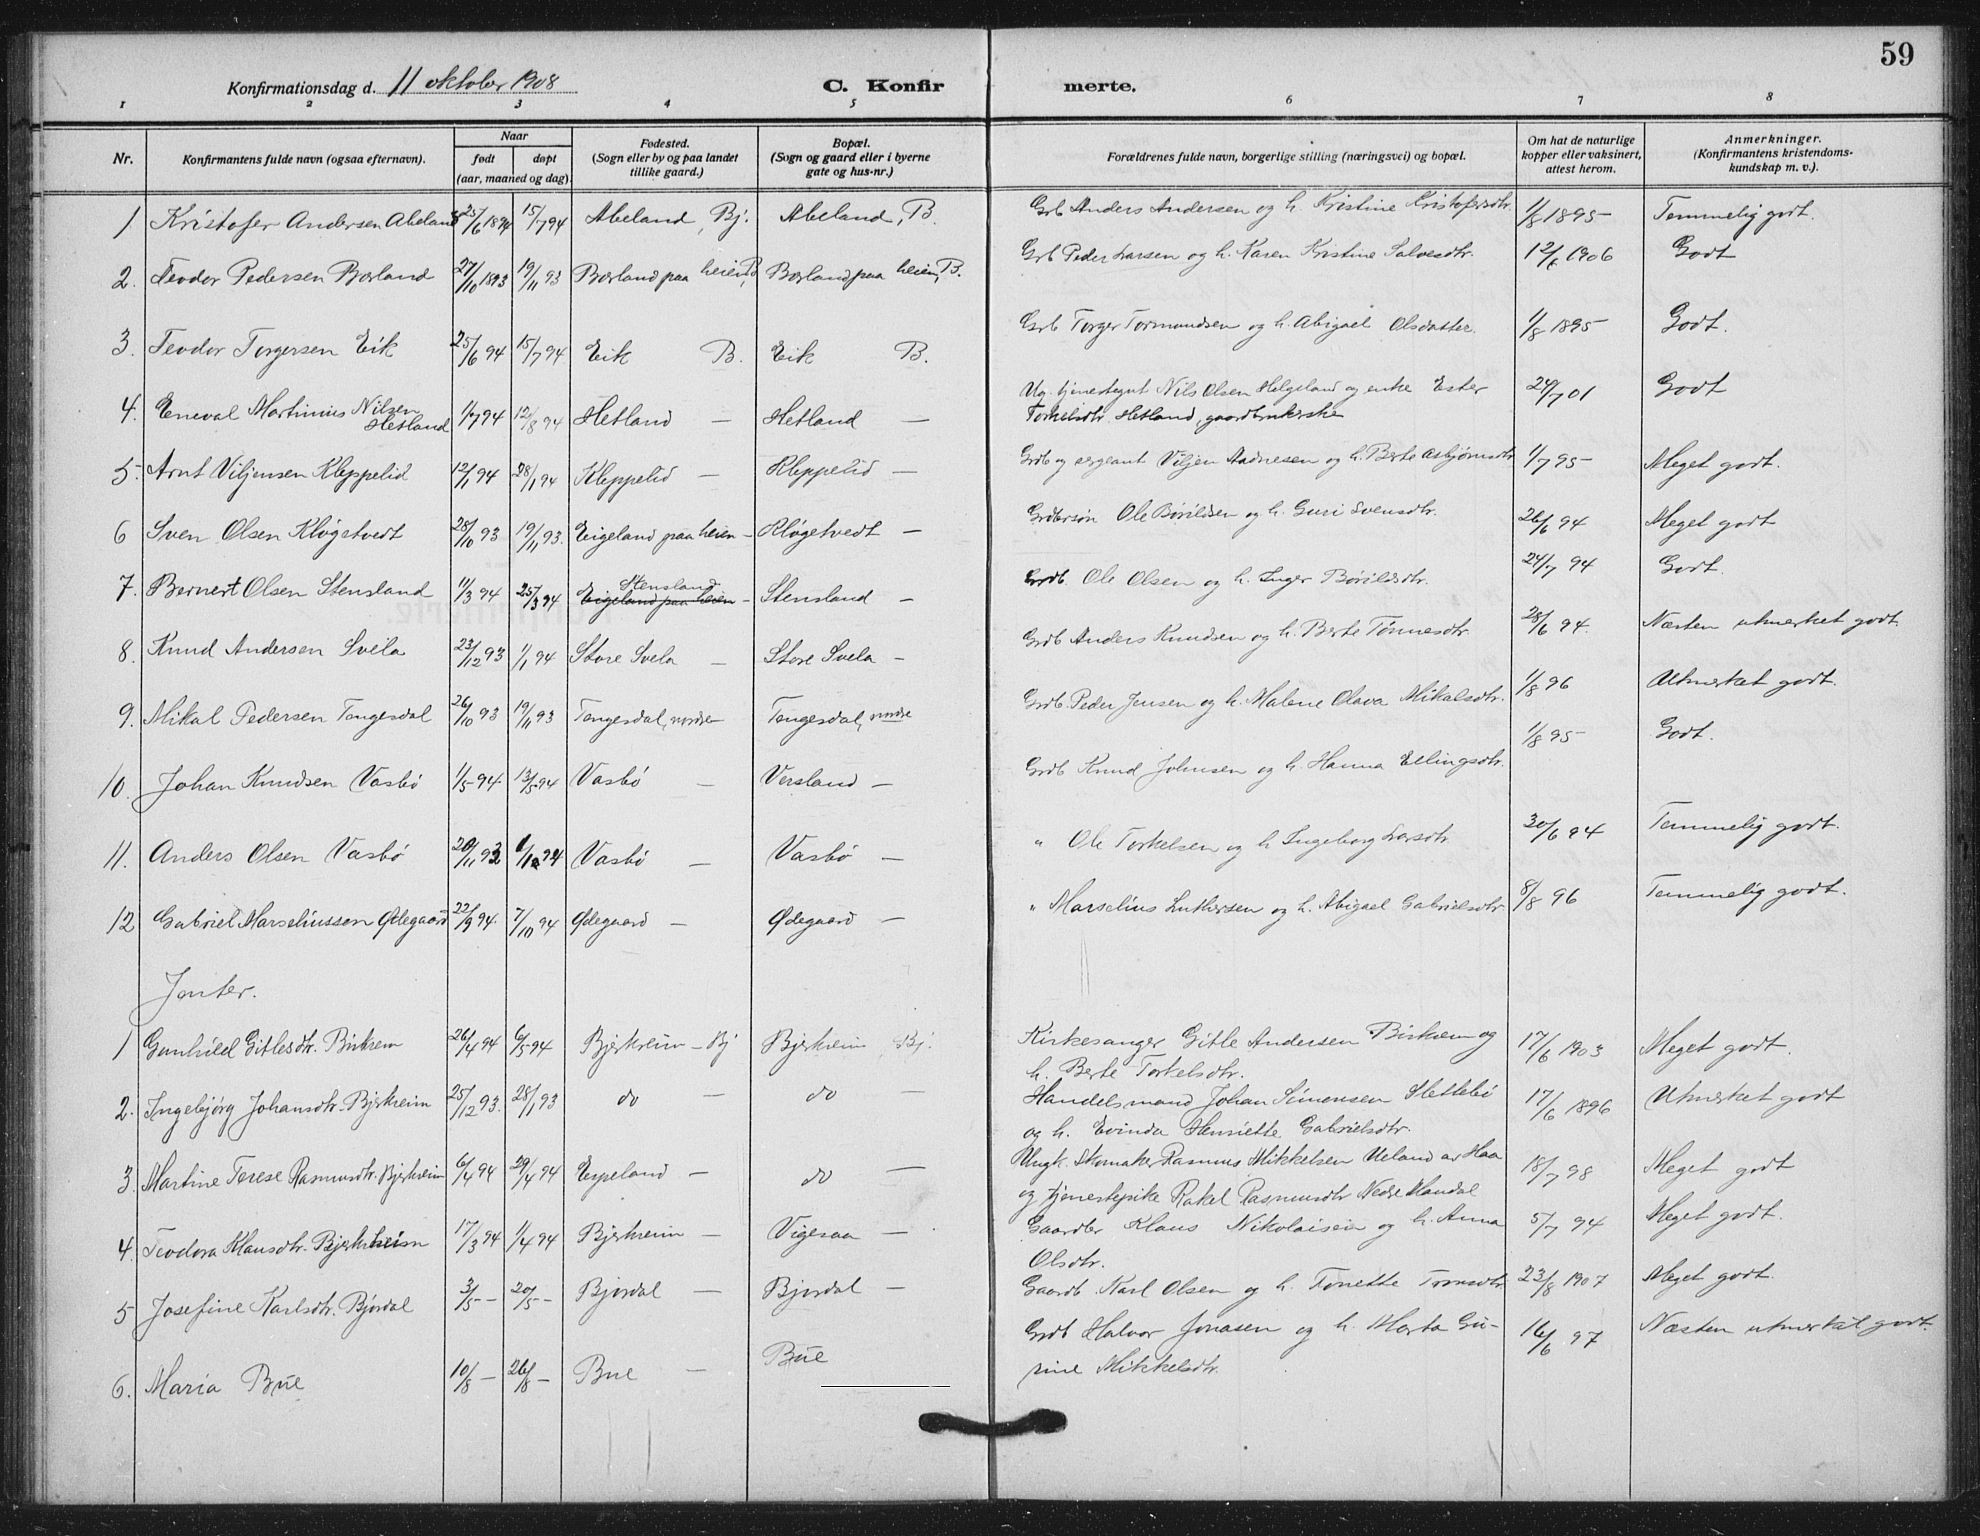 59
Konfirmationsdag d. 11 oktober 1908 C. Konfirmerte.
1 2 3 4 5 6 7 8
Nr. Konfirmantens fulde navn (ogsaa efternavn). Naar født døpt (aar, maaned og dag). Fødested. (Sogn eller by og paa landet tillike gaard.) Bopæl. (Sogn og gaard eller i byerne gate og hus-nr.) Forældrenes fulde navn, borgerlige stilling (næringsvei) og bopæl. Om hat de naturlige kopper eller vaksinert, attest herom. Anmerkninger. (Konfirmantens kristendomskundskap m. v.).
1 Kristofer Andersen Abeland 25/6 1894 15/7 94 Abeland, Bj. Abeland, B. Grb Anders Andersen og h. Kristine Kristofersdtr. 1/8 1895 Temmelig godt.
2. Teodor Pedersen Børland 27/10 1893 19/11 93 Børland paa heien, B. Børland paa heien, B. Grb Peder Larsen og h. Karen Kristine Salvesdtr. 12/6 1906 Godt
3. Teodor Torgersen Eik 25/6 94 15/7 94 Eik B. Eik B. Grb Torger Tormundsen og h. Abigael Olsdatter. 1/8 1895 Godt.
4. Eneval Martinius Nilsen Hetland 1/7 94 12/8 94 Hetland — Hetland — Ug. tjenestegut Nils Olsen Helgeland og enke Ester 24/7 01 Godt
Torkelsdtr. Hetland, gaardbrukerske
5. Arnt Viljensen Kleppelid 12/1 94 28/1 94 Kleppelid — Kleppelid — Grdb og sergeant Viljen Aadnesen og h. Berte Asbjørnsdtr 1/7 95 Meget godt.
6 Sven Olsen Kløgetvedt 28/10 93 19/11 93. Eigeland paa heien — Kløgetvedt — Grdbrsøn Ole Børildsen og h. Guri Svensdtr. 26/6 94 Meget godt
7. Bernert Olsen Stensland 11/3 94 25/3 94 Stensland Eigeland paa heien — Stensland — Grdb. Ole Olsen og h. Inger Børildsdtr. 24/7 94 Godt.
8. Knud Andersen Svela 23/12 93 1/1 94 Store Svela — Store Svela — Grdb Anders Knudsen og h. Berte Tønnesdtr. 28/6 94. Næsten utmerket godt.
9. Mikal Pedersen Tengesdal 26/10 93 19/11 93 Tengesdal, nordre Tengesdal, nordre Grdb. Peder Jensen og h. Malene Olava Mikalsdtr. 1/8 96 Utmerket godt.
10. Johan Knudsen Vasbø 1/5 94 13/5 94 Vasbø — Versland — Grdb Knud Johnsen og h. Hanna Ellingsdtr. 1/8 95 Godt.
11. Anders Olsen Vasbø 20/11 93 1/1 94 Vasbø — Vasbø — " Ole Torkelsen og h Ingeborg Larsdtr 30/6 94 Temmelig godt.
12 Gabriel Marseliussen Ødegaard 22/9 94. 7/10 94 Ødegaard — Ødegaard — " Marselius Luthersen og h. Abigael Gabrielsdtr 8/8 96 Temmelig godt.
Jenter.
1 Gunhild Gitlesdtr. Birkrem 26/4 94 6/5 94 Bjerkreim — Bj Bjerkreim Bj. Kirkesanger Gitle Andersen Birkrem og 17/6 1903 Meget godt.
h. Berte Torkelsdtr.
2. Ingebjørg Johansdtr. Bjerkreim 25/12 93. 28/1 93 do — do — Handelsmand Johan Simonsen Slettebø 17/6 1896 Utmerket godt
og h. Evinda Henriette Gabrielsdtr.
3. Martine Terese Rasmusdtr. Bjerkreim 6/4 94 29/4 94 Espeland — do — Ungk. Skomaker Rasmus Mikkelsen Ueland av Haa 18/7 98 Meget godt
og tjenestepike Rakel Rasmusdtr Nedre Mandal
4. Teodora Klausdtr. Bjerkreim 17/3 94 1/4 94 Bjerkreim — Vigesaa — Gaardbr Klaus Nikolaisen og h. Anna 5/7 94 Meget godt.
Olsdtr.
5 Josefine Karlsdtr. Bjørdal 3/5 — 20/5 — Bjørdal — Bjørdal — Gaardb Karl Olsen og h. Tonette Tomsdtr. 23/8 1907 Meget godt.
6. Maria Bue 10/8 — 26/8 — Bue — Bue Grdb Halvor Jonasen og h. Marta Gu- 16/6 97 Næsten utmerket godt.
rine Mikkelsdtr.